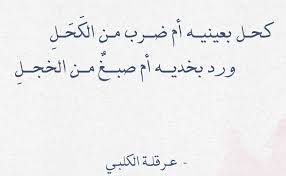 كحل بعينيه أم ضرب من الكَحَلِ
ورد بخديه أم صبغٌ من الخجلِ
- عرقلة الكلبي